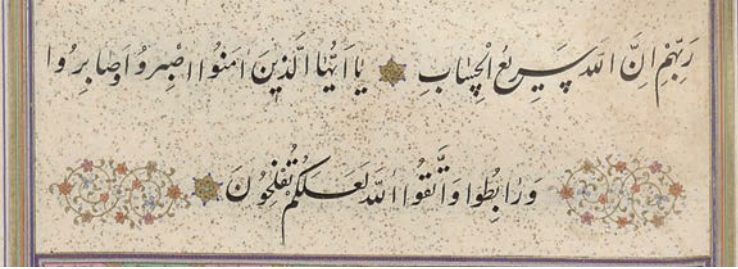 رَبِّهِمْ اِنَّ اللّٰهَ سَرِیعُ الْحِسَابِ یَا اَیُّهَا الَّذِینَ اٰمَنُوا اصْبِرُوا وَصَابِرُوا
وَرَابِطُوا وَاتَّقُوا اللّٰهَ لَعَلَّکُمْ تُفْلِحُونَ